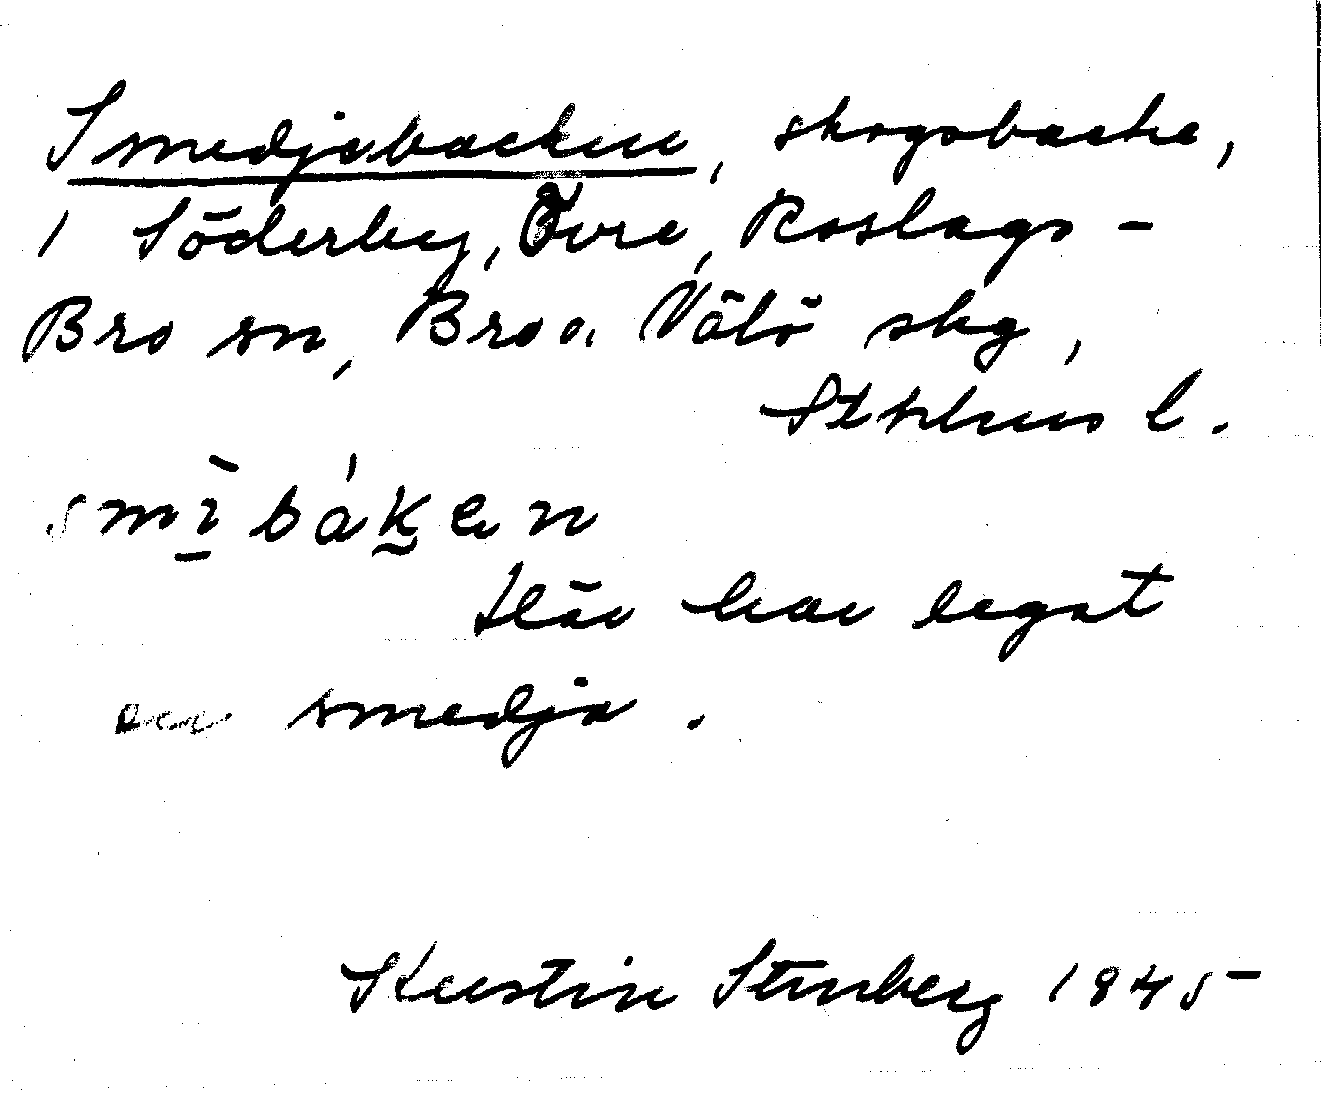 Smedjebacken, skogsbacke,
1 Söderby, Övre, Roslags-
Bro sn, Bro o. Vätö skg,
Sthlms l.
smìbáken
Här har legat
en smedja.
Kerstin Stenberg 1945